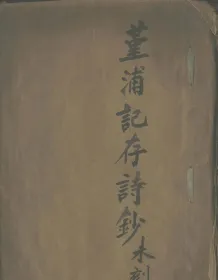 堇浦記存詩鈔
木刻